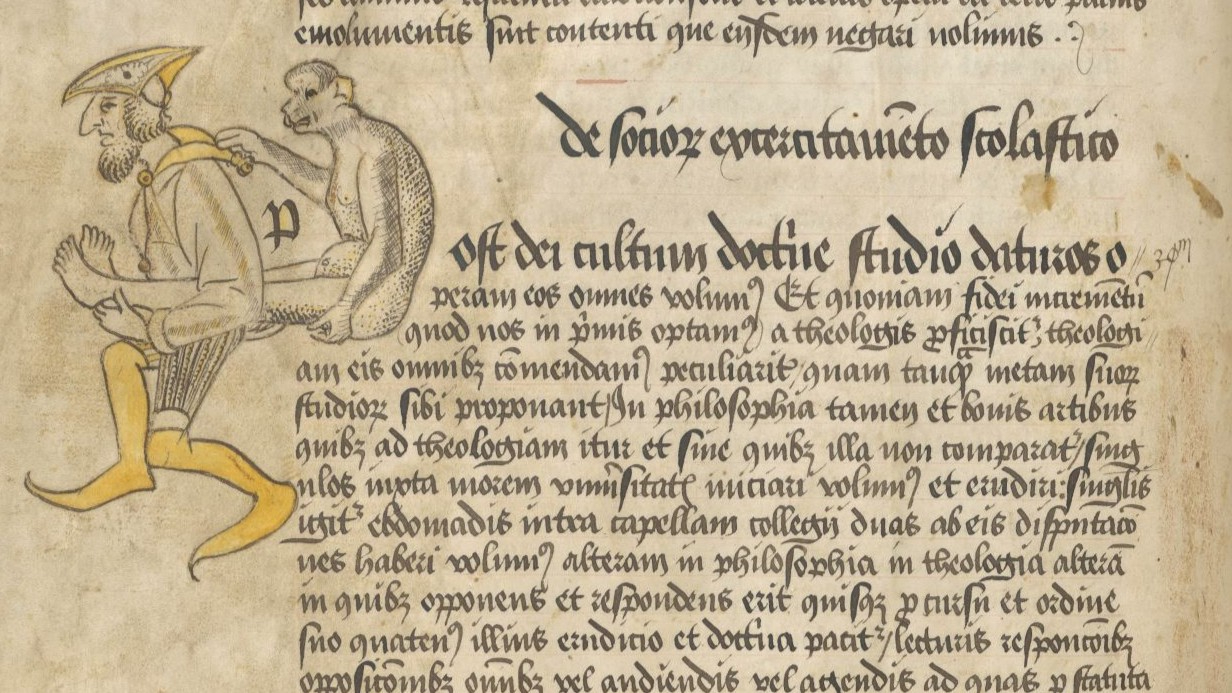 emolumentis sint contenti que eijsdem negari nolumus .
De socioꝝ excercitamēto scolastico
Post dei cultum doctͥne studio daturos o
peram eos omnes volumꝰ Et quoniam fidei incremētū
quod nos in pͥmis optamꝰ a theologis ꝓficiscit᷑ theologi
am eis omnibꝫ cōmendamꝰ peculiarit᷑ quam tanqᷓ metam suoꝝ
studioꝝ sibi proponant / In philosophia tamen et bonis artibus
quibꝫ ad theologiam itur et sine quibꝫ illa non comparat᷑ / sing
ulos iuxta morem vniũsitatꝭ iniciari volumꝰ et erudiri : singlis
igit᷑ ebdomadis intra capellam collegij duas ab eis disputacō
nes haberi volumꝰ alteram in philosophia in theologia alterā
in quibꝫ opponens et respondens erit quisqꝫ ꝓ cursu et ordine
suo quatenꝰ illius erudicio et doctͥna pacit᷑ / lecturis responcōibꝫ
opposicōibꝫ om̄ibꝫ vel audiendis vel agendis ad quas ꝑ statuta